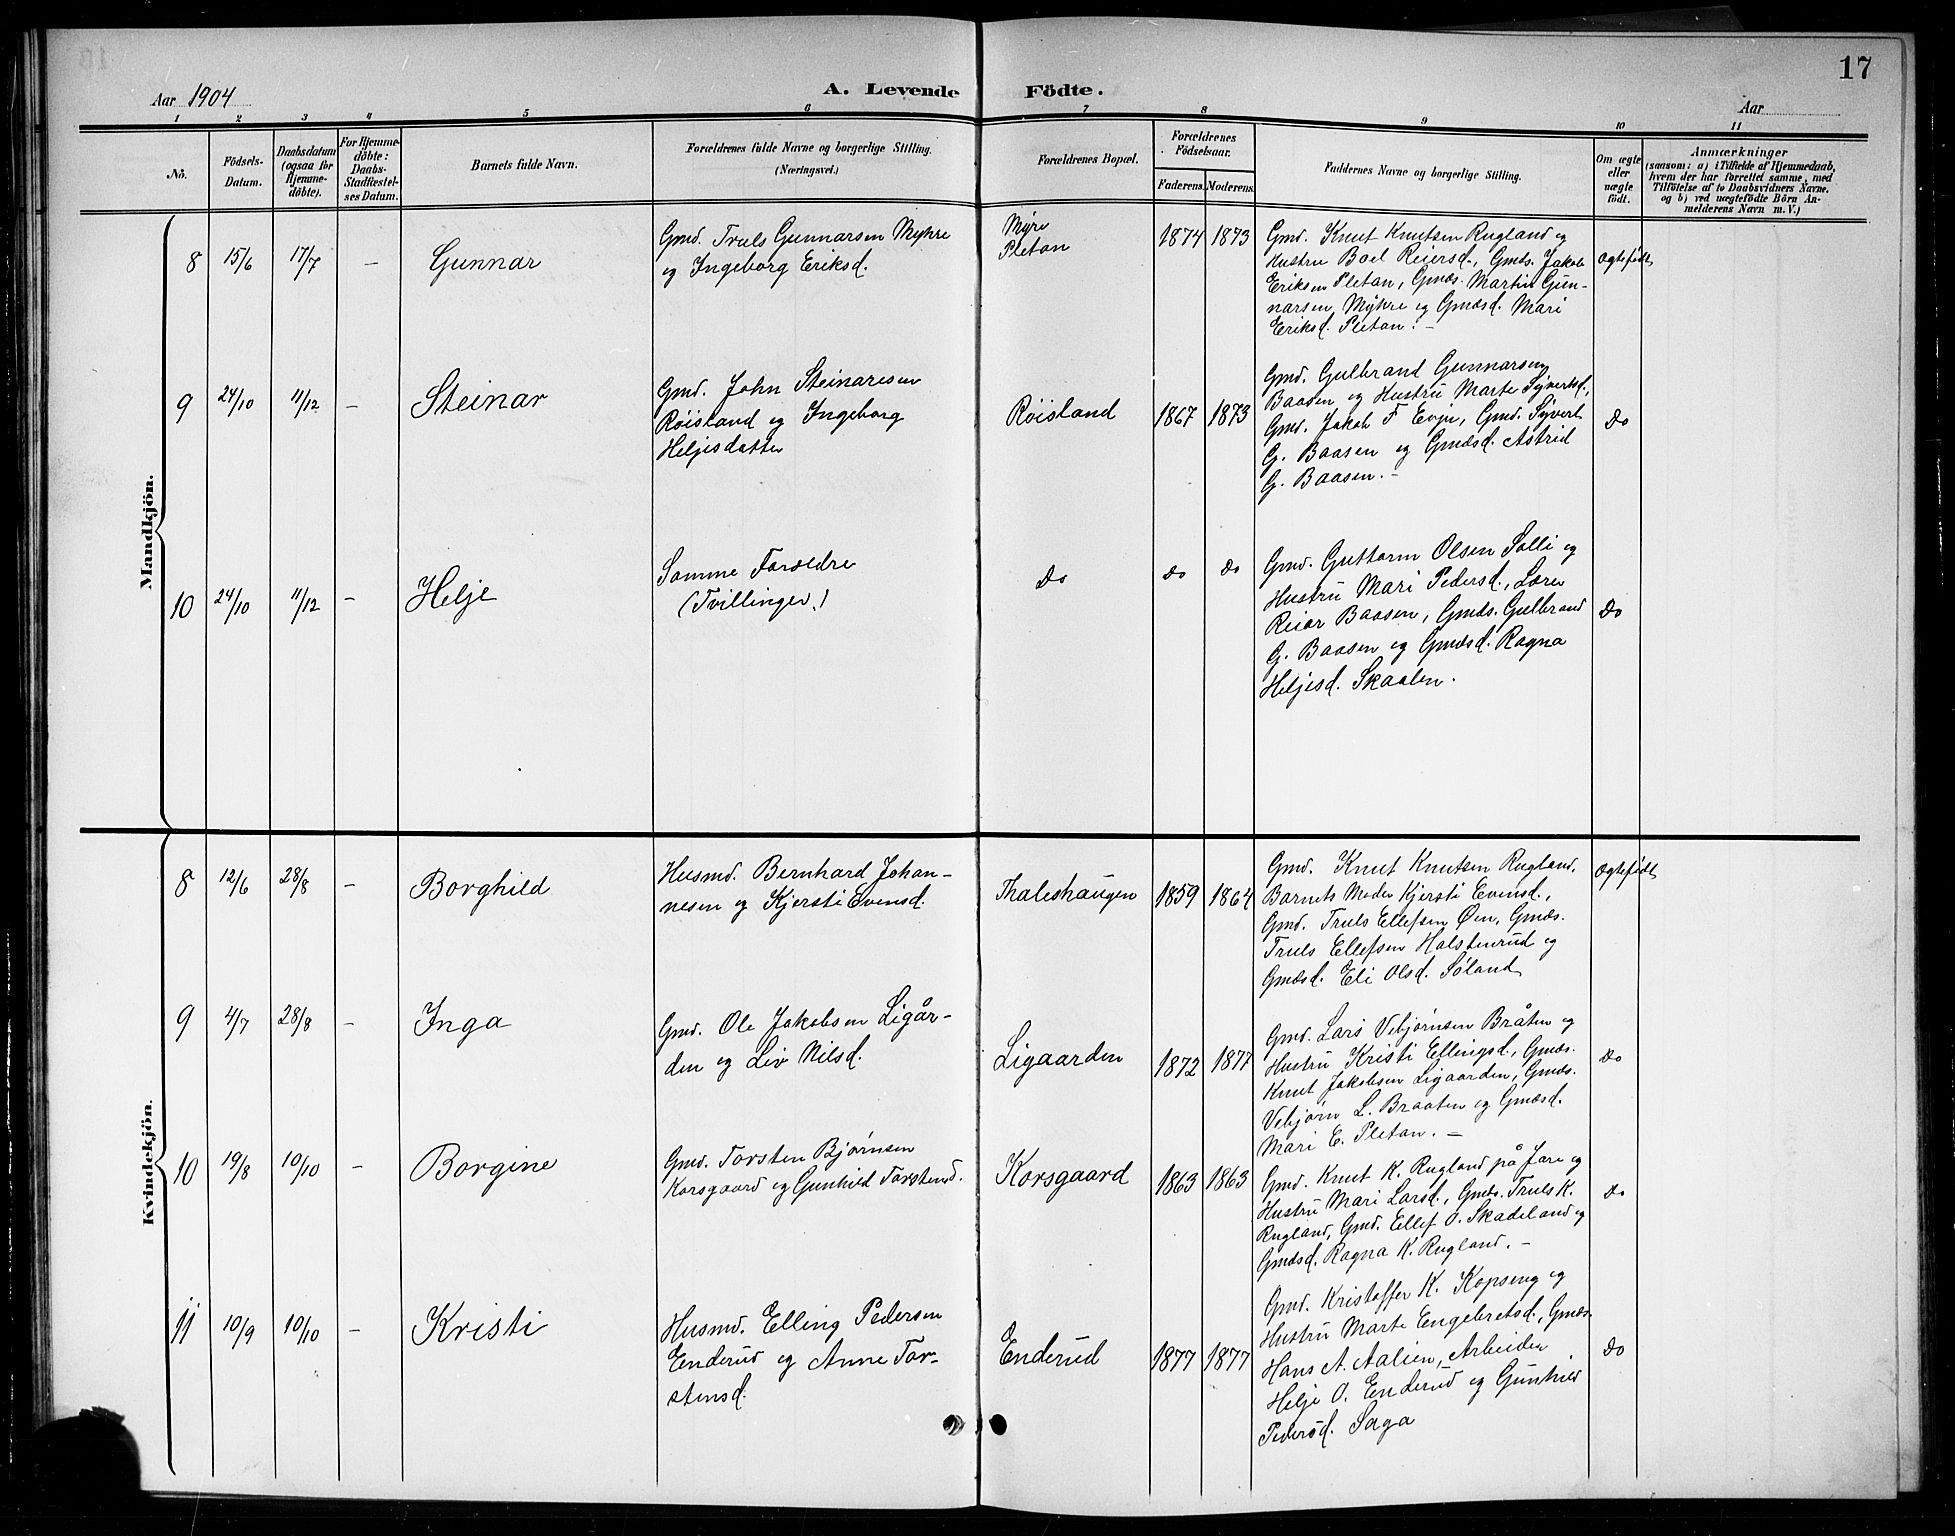 17
Aar 1904
A. Levende Födte.
Aar
1 2 3 4 5 6 7 8 9 10 11
Nö.
Födsels-
Datum.
Daabsdatum
(ogsaa for
Hjemme-
döbte).
For Hjemme-
döbte:
Daabs-
Stadfæstel-
ses Datum.
Barnets fulde Navn.
Forældrenes fulde Navne og borgerlige Stilling.
(Næringsvei.)
Forældrenes Bopæl.
Forældrenes
Födselsaar.
Faderens.
Moderens.
Faddernes Navne og borgerlige Stilling.
Om ægte
eller
uægte
födt.
Anmærkninger
(saasom: a) i Tilfælde af Hjemmedaab,
hvem der har forrettet samme, med
Tilföielse af to Daabsvidners Navne.
og b) ved uægtefödte Börn An-
melderens Navn m. V.)
Mandkjön.
8
15/6
17/7
–
Gunnar
Gmd. Truls Gunnarsen Myhre
og Ingeborg Eriksd.
Myre
Pletan
1874
1873
Gmd. Knut Knutsen Rugland og
Hustru Boel Reiersd., Gmds. Jakob
Eriksen Pletan, Gmæs. Martin Gun-
narsen Myhre og Gmæsd. Mari
Eriksd. Pletan. –
Ægtefødt
9
24/10
11/12
–
Steinar
Gmd. John Steinaresen
Røisland og Ingeborg
Heljesdatter
Røisland
1867
1873
Gmd. Gulbrand Gunnarseng
Baasen og Hustru Marte Syversd.,
Gmd. Jakob F Evje, Gmd. Syvert
G. Baasen og Gmæsd. Astrid
G. Baasen. –
Do
10
24/10
11/12
–
Helje
Samme Foreldre
(Tvillinger.)
Do
Do
Do
Gmd. Guttorm Olsen Solli og
Hustru Mari Pedersd., Lærer
Reiar Baasen, Gmds. Gulbrand
G. Baasen og Gmæsd. Ragna
Heljesd. Skaalen.
Do
Kvindekjön.
8
12/6
28/8
–
Borghild
Husmd. Bernhard Johan-
nesen og Kjersti Evensd.
Thaleshaugen
1859
1864
Gmd. Knut Knutsen Rugland.
Barnets Moder Kjersti Evensd.,
Gmd. Truls Ellefsen Øen, Gmæs.
Truls Ellefsen Halstenrud og
Gmæsd. Eli Olsd. Søland
Ægtefødt
9
4/7
28/8
–
Inga
Gmd. Ole Jakobsen Ligår-
den og Liv Nilsd.
Ligaarden
1872
1877
Gmd. Lars Vebjørnsen Bråten og
Hustru Kristi Ellingsd., Gmæs.
Knut Jakobsen Ligaarden, Gmæs.
Vebjørn L. Braaten og Gmæsd.
Mari E. Pletan. –
Do
10
19/8
10/10
–
Borgine
Gmd. Torsten Bjørnsen
Korsgaard og Gunhild Torstensd.
Korsgaard
1863
1863
Gmd. Knut K. Rugland på Jare og
Hustru Mari Larsd., Gmds. Truls K.
Rugland, Gmd. Ellef O. Skadeland og
Gmæsd. Ragna K. Rugland. –
Do
11
10/9
10/10
–
Kristi
Husmd. Elling Pedersen
Enderud og Anne Tor-
stensd.
Enderud
1877
1877
Gmd. Kristoffer K. Kopseng og
Hustru Marte Engebretsd., Gmæs.
Hans A. Aalien, Arbeider
Helje O. Enderud og Gunhild
Pedersd. Saga
Do